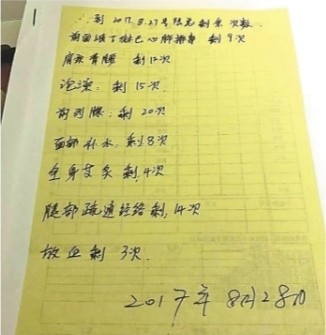 到2017.8.27号除完剩余次数.
前面 淋巴心肺排毒 剩9次
肩颈背腰 剩12次
泡澡: 剩15次
前列腺: 剩20次
面部补水, 剩8次
全身艾灸剩, 4次
腿部疏通经络剩, 14次
放血剩 3次.
2017年8月28日